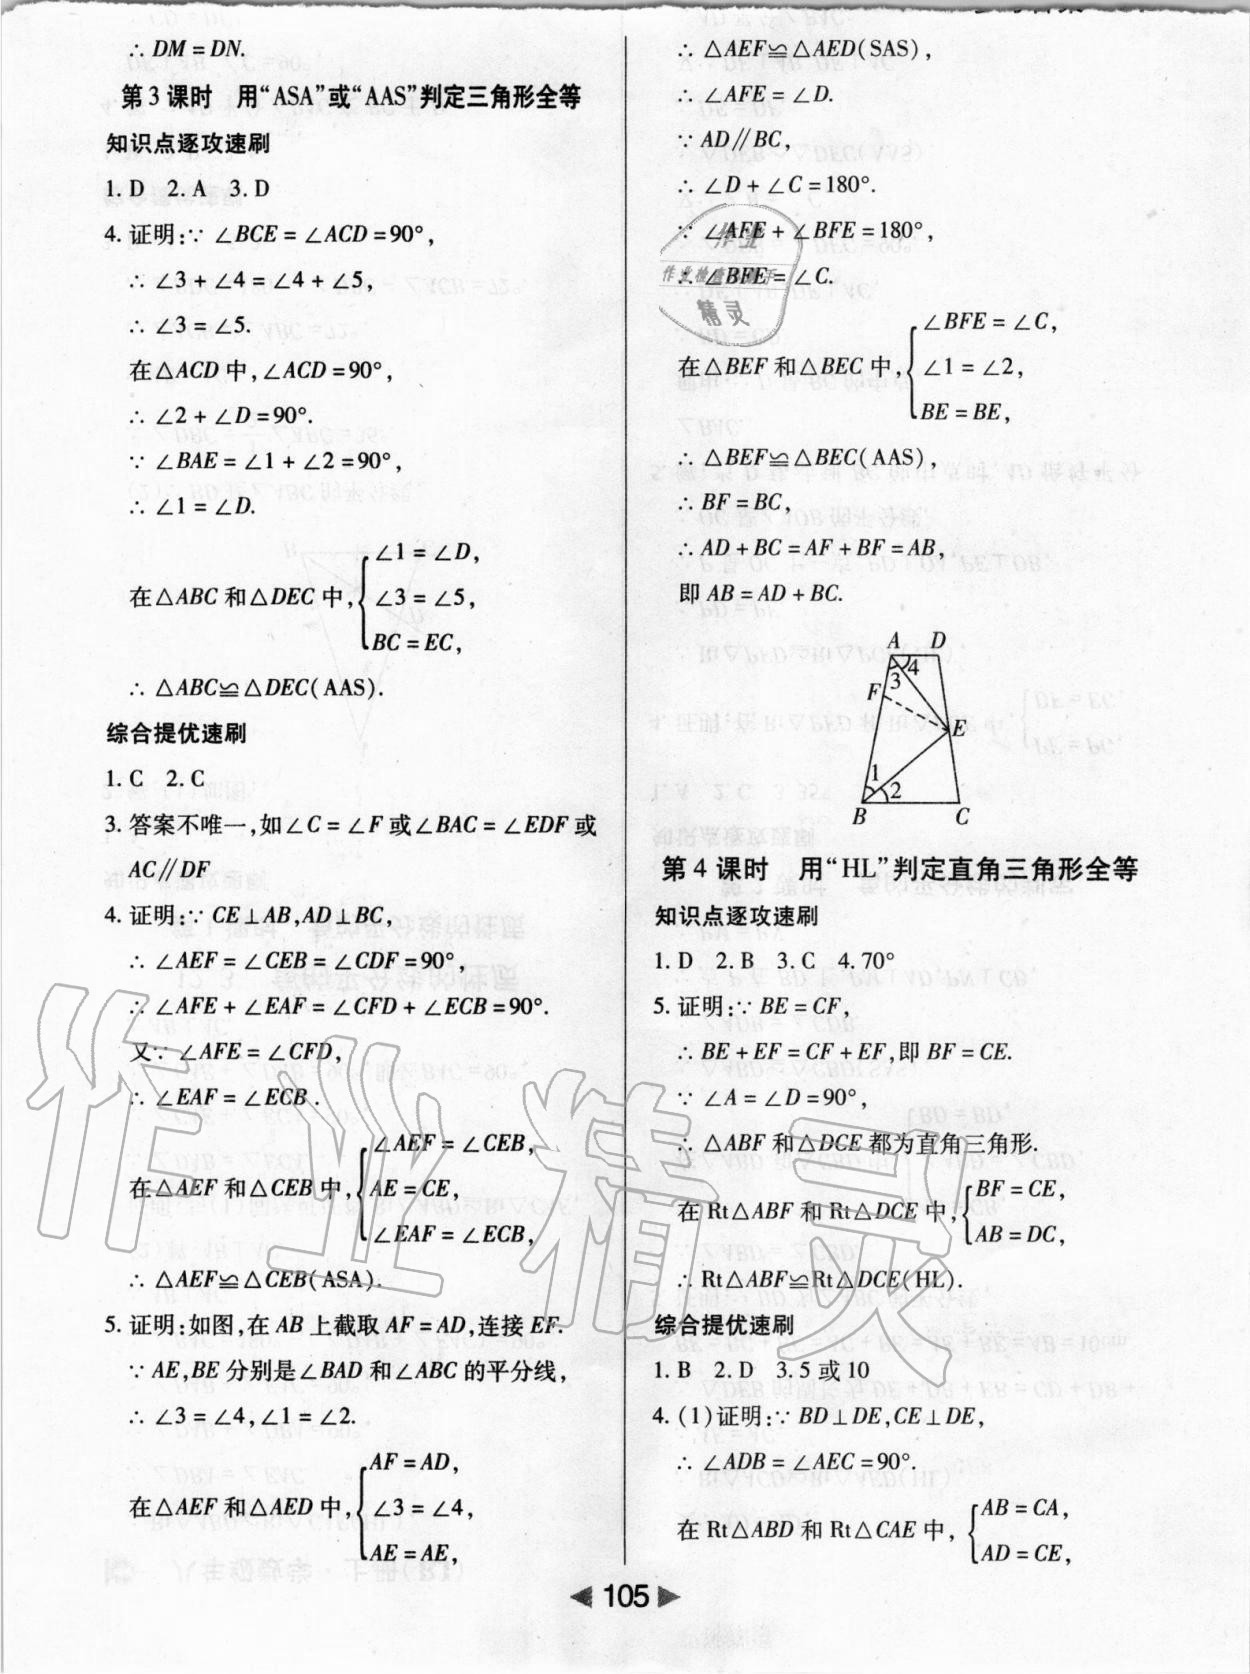 ∴ DM = DN.
第3课时 用“ASA”或“AAS”判定三角形全等
知识点逐攻速刷
1. D 2. A 3. D
4. 证明:∵ ∠BCE = ∠ACD = 90°,
∴ ∠3 + ∠4 = ∠4 + ∠5,
∴ ∠3 = ∠5.
在△ACD 中,∠ACD = 90°,
∴ ∠2 + ∠D = 90°.
∵ ∠BAE = ∠1 + ∠2 = 90°,
∴ ∠1 = ∠D.
∠1 = ∠D,
在△ABC 和△DEC 中, ∠3 = ∠5,
BC = EC,
∴ △ABC≌△DEC(AAS).
综合提优速刷
1. C 2. C
3. 答案不唯一,如∠C = ∠F 或∠BAC = ∠EDF 或
AC∥DF
4. 证明:∵ CE⊥AB,AD⊥BC,
∴ ∠AEF = ∠CEB = ∠CDF = 90°,
∴ ∠AFE + ∠EAF = ∠CFD + ∠ECB = 90°.
又∵ ∠AFE = ∠CFD,
∴ ∠EAF = ∠ECB .
∠AEF = ∠CEB,
在△AEF 和△CEB 中, AE = CE,
∠EAF = ∠ECB,
∴ △AEF≌△CEB(ASA).
5. 证明:如图,在 AB 上截取 AF = AD,连接 EF.
∵ AE,BE 分别是∠BAD 和∠ABC 的平分线,
∴ ∠3 = ∠4,∠1 = ∠2.
AF = AD,
在△AEF 和△AED 中, ∠3 = ∠4,
AE = AE,
∴ △AEF≌△AED(SAS),
∴ ∠AFE = ∠D.
∵ AD∥BC,
∴ ∠D + ∠C = 180°.
∵ ∠AFE + ∠BFE = 180°,
∴ ∠BFE = ∠C.
∠BFE = ∠C,
在△BEF 和△BEC 中, ∠1 = ∠2,
BE = BE,
∴ △BEF≌△BEC(AAS),
∴ BF = BC,
∴ AD + BC = AF + BF = AB,
即 AB = AD + BC.
A D
3 4
F
E
1 2
B C
第4课时 用“HL”判定直角三角形全等
知识点逐攻速刷
1. D 2. B 3. C 4. 70°
5. 证明:∵ BE = CF,
∴ BE + EF = CF + EF,即 BF = CE.
∵ ∠A = ∠D = 90°,
∴ △ABF 和△DCE 都为直角三角形.
在 Rt△ABF 和 Rt△DCE 中, BF = CE,
AB = DC,
∴ Rt△ABF≌Rt△DCE(HL).
综合提优速刷
1. B 2. D 3. 5 或 10
4. (1)证明:∵ BD⊥DE,CE⊥DE,
∴ ∠ADB = ∠AEC = 90°.
在 Rt△ABD 和 Rt△CAE 中, AB = CA,
AD = CE,
105
作业精灵